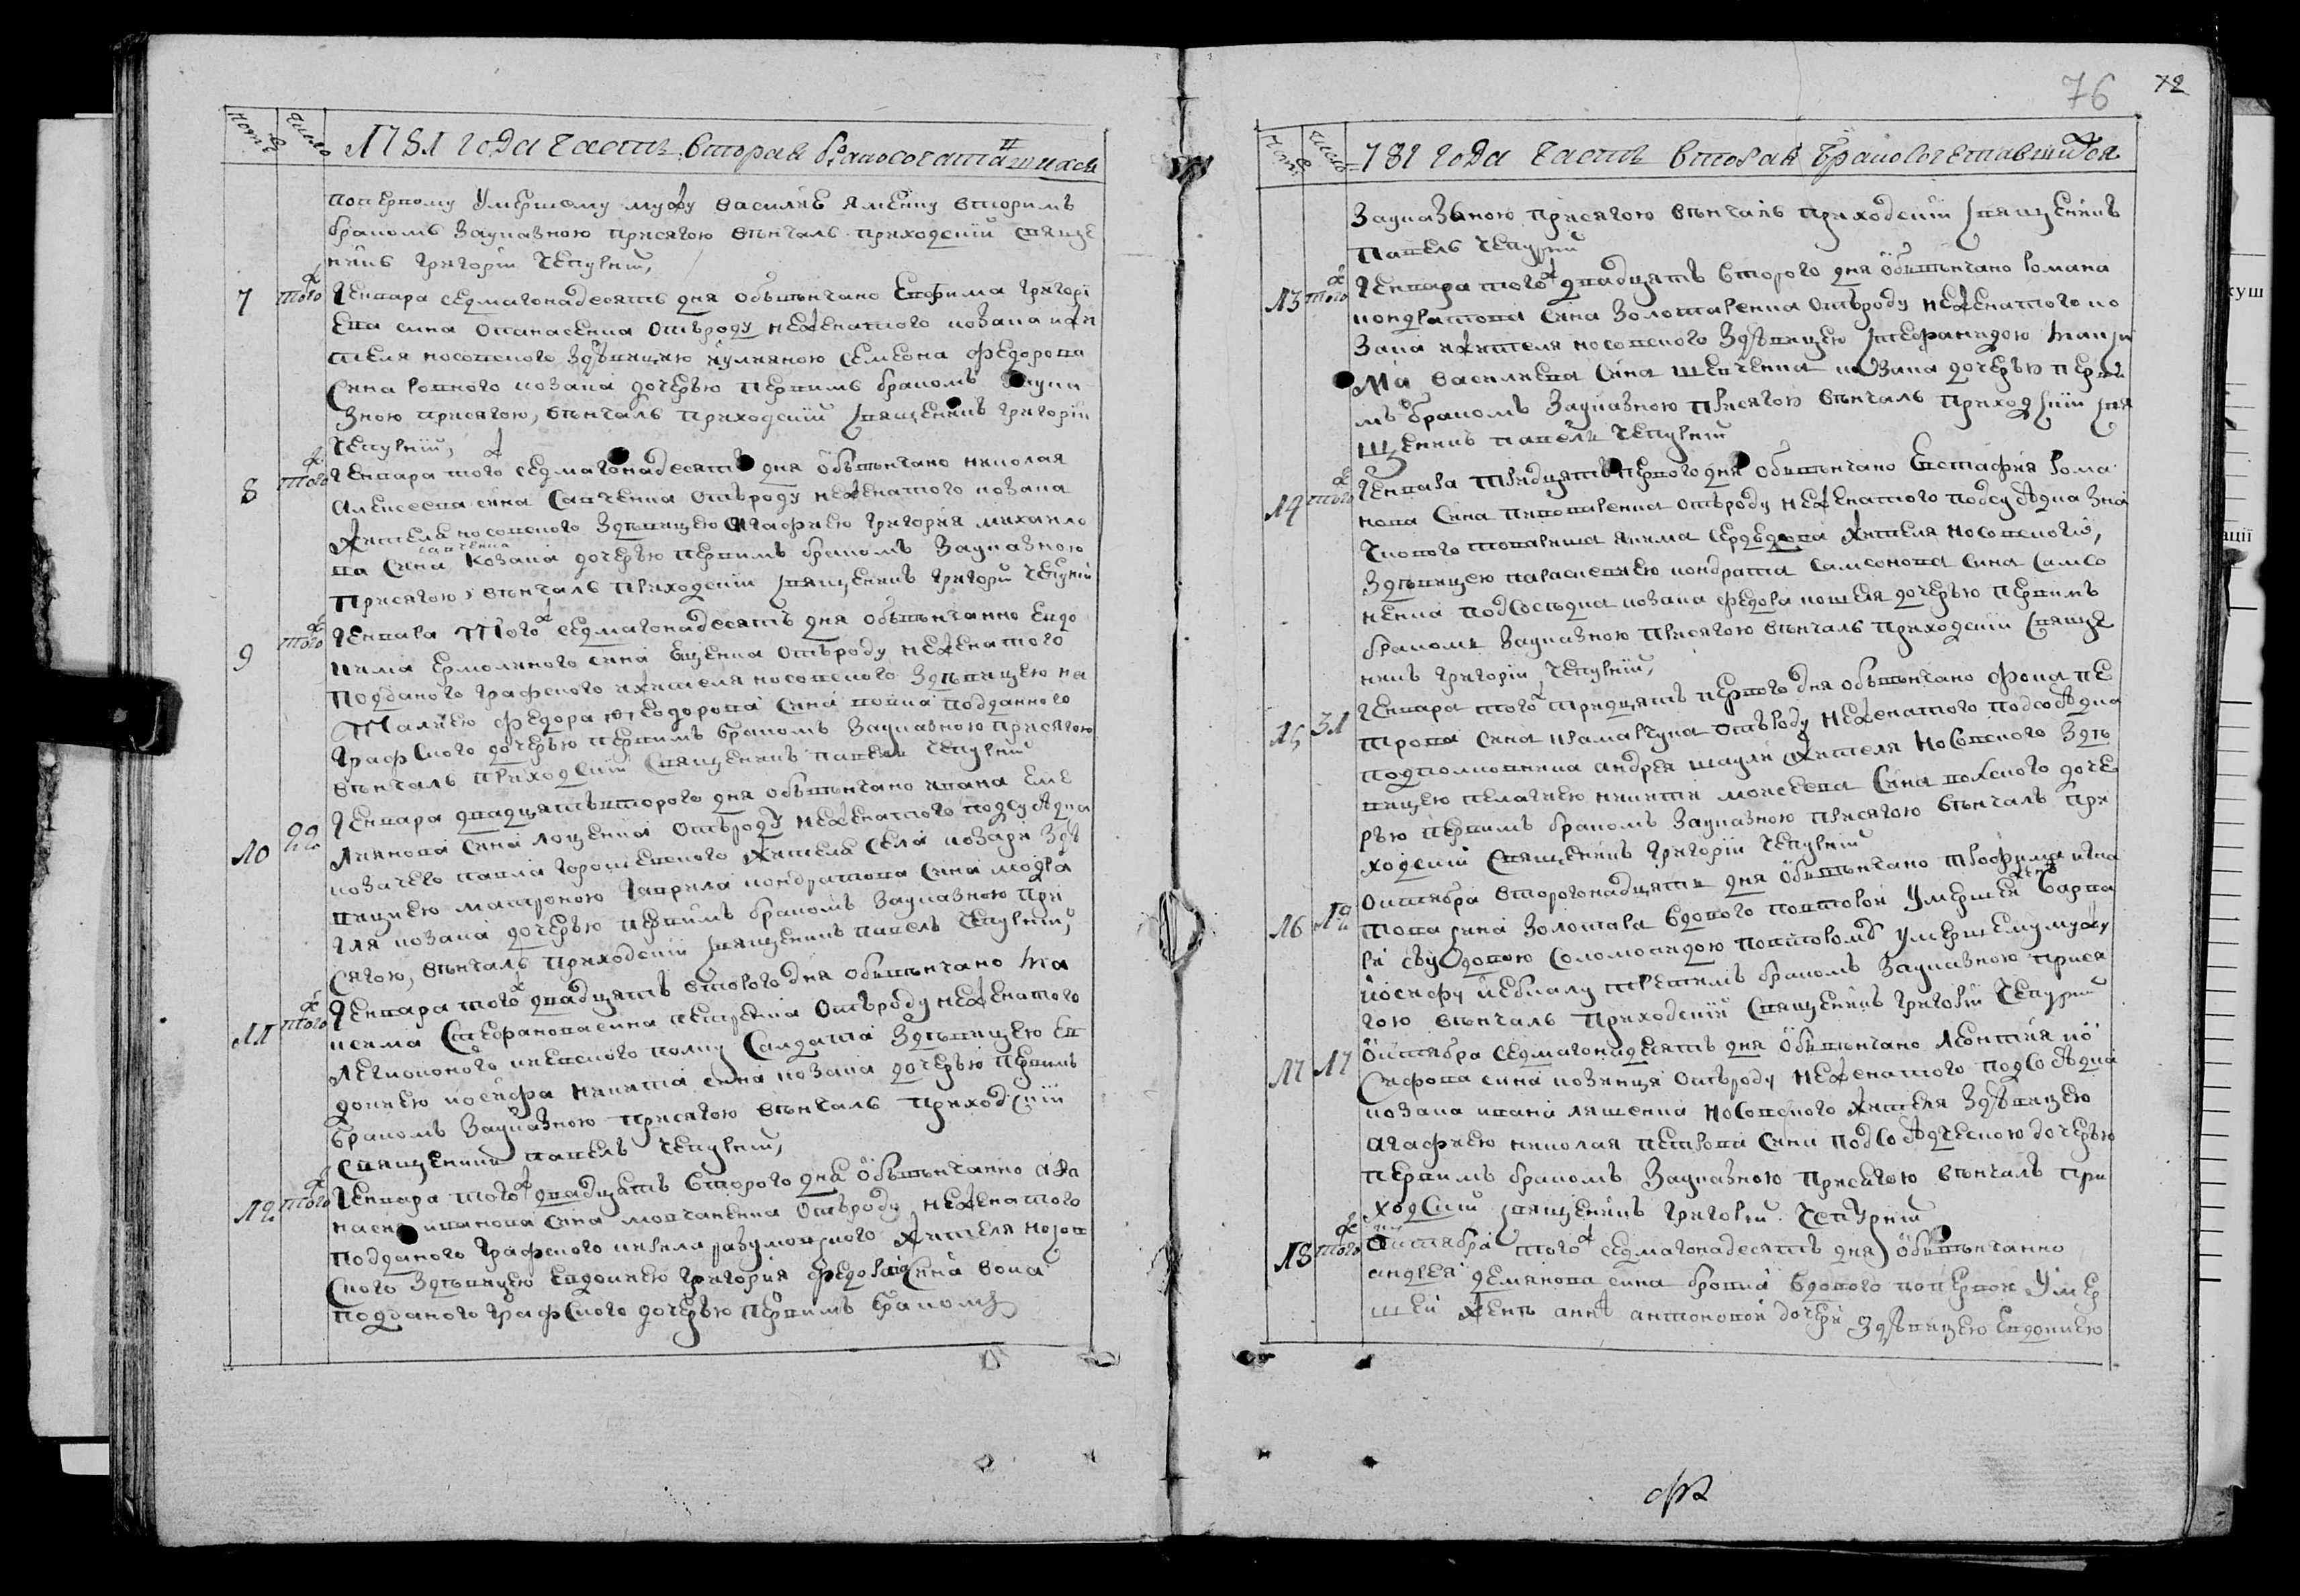 Число
1781 года часть вторая бракосочатавшихся
поперному умершему мужу василию ямений вторимъ
бракомъ зауказною присягою венчалъ приходский священе
никъ григорій чепурний,
7 того ж Генвара седмагонадесять дня обвенчано Евфима григорі
ева сина опанасенка отъроду нежонатого козака жи
теля носовского здевицею иулианою семеона федорова
сина козака дочерью первимъ бракомъ заука
зною присягою, венчалъ приходский священикъ григорій
чепурний,
8 того ж Генвара того ж седмагонадесять дня обвенчано николая
алексеева сина савченка отъроду нежонатого козака
жителя носовского здевицею агафиею григория михайло
ва сина савченка козака дочерью первимъ бракомъ зауказною
присягою, венчалъ приходский священикъ григорій чепурний
9 того ж Генвара того ж седмагонадесять дня обвенчанно евдо
кима ермоленого сина ещенка отъроду нежонатого
подданого графского жителя носовского здевицею на
талиею федора феодорова сина подданного
графского дочерью первимъ бракомъ зауказною присягою
венчалъ приходский священикъ павелъ чепурний
10 22 Генвара двадцятьвторого дня обвенчано ивана еме
ляянова сина лощенка отъроду нежонатого подсуседка
козачего павла жителя села козари зде
вицею матроною гаврила кондратова сина
козака дочерью первимъ бракомъ зауказною при
сягою, венчалъ приходский священикъ павелъ чепурний,
11 того ж Генвара того ж двадцять второго дня обвенчано ма
ксима стефанова сина петренка отъроду нежонатого
киевского полку салдата здевицею ев
докиею иосифа никити сина козака дочерью первимъ
бракомъ зауказною присягою венчалъ приходский
священикъ павелъ чепурний,
12 того ж Генвара того ж двадцять второго дня обвенчанно афа
насия иванова сина мовчаненка отъроду нежонатого
подданого графского кирила разумовского жителя носов
ского здевицею евдокиею григория федорова сина вока
подданого графского дочерью первимъ бракомъ
76
72
781 года часть вторая бракосочетавшихся
зауказною присягою венчалъ приходский священикъ
павелъ чепурний
13 того ж Генвара того ж двадцять второго дня обвенчано романа
кондратова сина золотаренка отъроду нежонатого ко
зака жителя носовского здевицею стефанидою макси
ма василиева сина шевченка козака дочерью перви
мъ бракомъ зауказною присягою венчалъ приходский свя
щеникъ павелъ чепурний
14 того ж Генвара тридцятьпервого дня обвенчано евстафия рома
нова сина пивоваренка отъроду нежонатого подсуседка зна
чкового товариша якима сердюкова жителя носовского,
здевицею параскевиею кондрата самсонова сина самсо
ненка подсоседка козака федора кошеля дочерью первимъ
бракомъ зауказною присягою венчалъ приходский священ
никъ григорій чепурний,
15 31 Генвара того ж тридцять первого дня обвенчано фока пе
трова сина крамарчука отъроду нежонатого подсоседка
подполковника андрея шаули жителя носовского зде
вицею пелагиею никити моисеева сина дочер
рью первимъ бракомъ зауказною присягою венчалъ при
ходский священикъ григорій чепурний
16 12 октября второгонадцять дня обвенчано трофима игна
това сина золотара вдового повторой умершей жене варва
ри звдовою соломонидою повторомъ умершему мужу
иосифу третимъ бракомъ зауказною прися
гою венчалъ приходский священикъ григорій чепурний
17 17 октября седмагонадесять дня обвенчано леонтия ио
сифова сина козинця отъроду нежонатого подсоседка
козака ивана ляшенка носовского жителя здевицею
агафиею николая петрова сина подсоседческою дочерью
первимъ бракомъ зауказною присягою венчалъ при
ходский священикъ григорій чепурний
18 того ж октября того ж седмагонадесять дня обвенчанно
андрея демянова сина бровка вдового попервой умер
шей жене анне антоновой дочери здевицею евдокиею